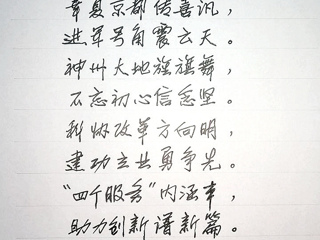 华夏京都传喜讯，
进军号角震云天。
神州大地旌旗舞，
不忘初心信念坚。
科协改革方向明，
建功立业勇争先。
“四个服务”内涵丰，
助力创新谱新篇。